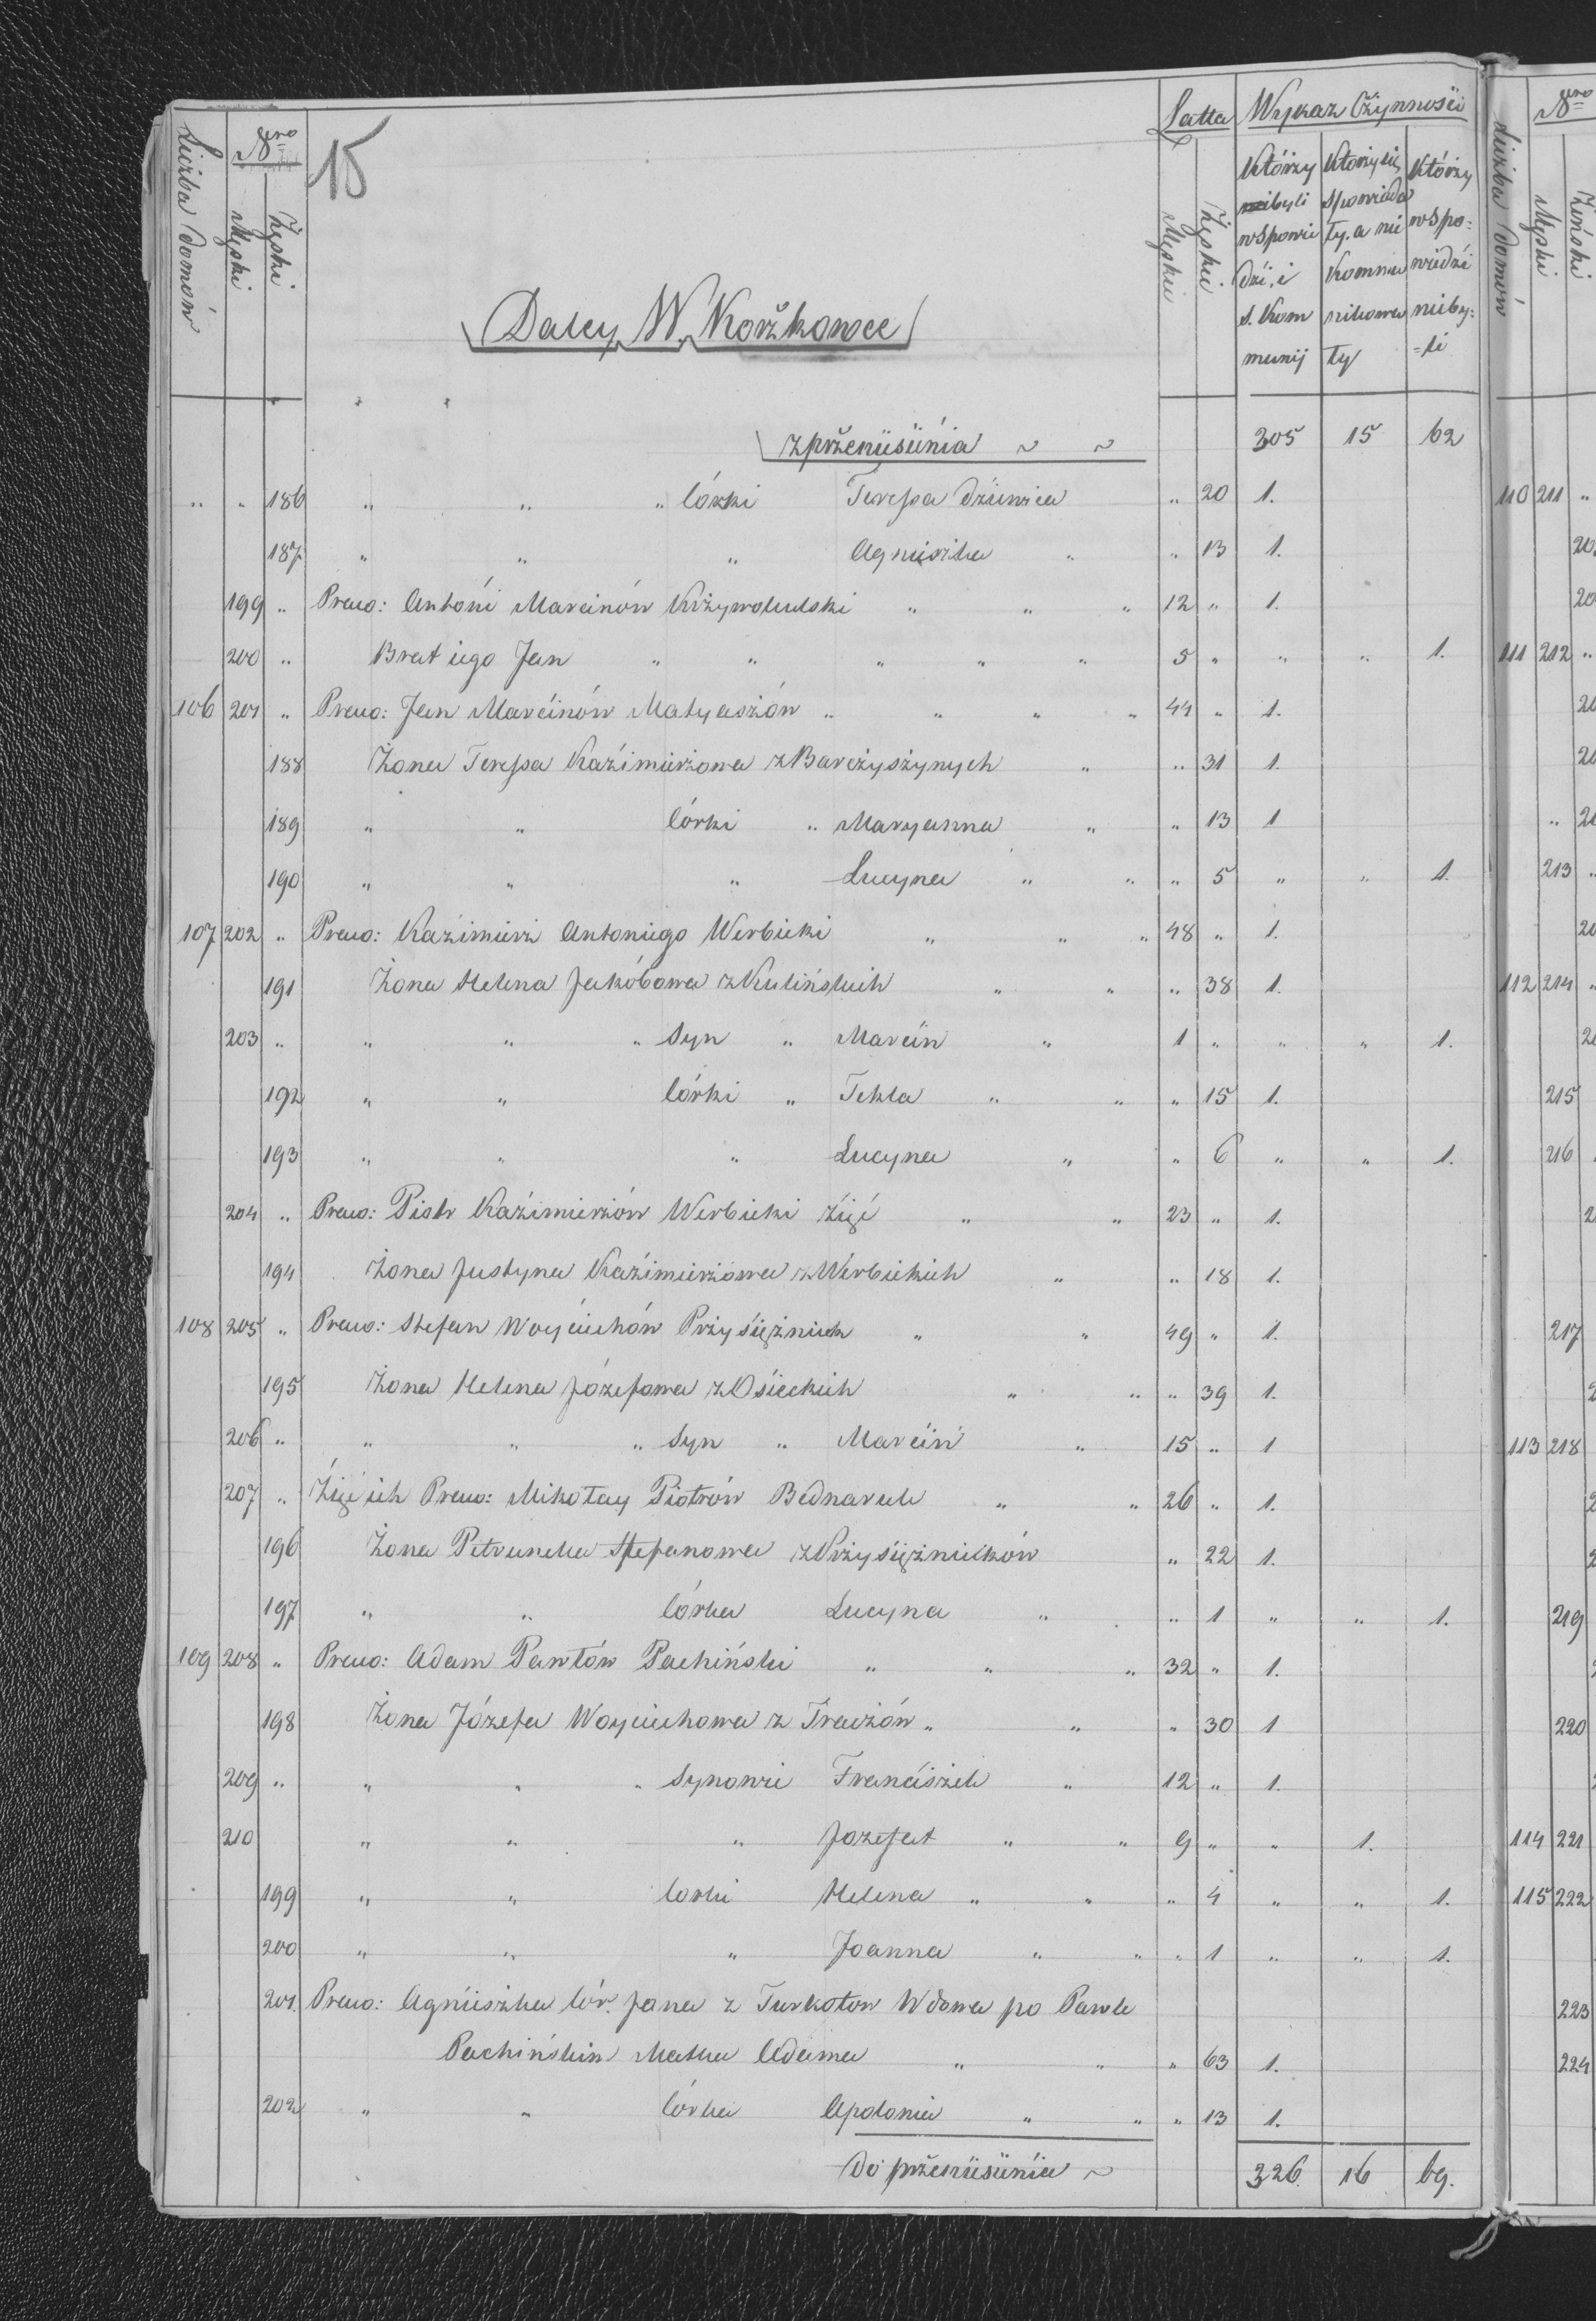 15
Liczba domów
Nero
Męski
Żeński
Latta
Męskie
Żeńskie
Wykaz Czynności
Którzy byli w spowiedzi, i s. Kommunij
Którzy się spowiadały. a nie Kommunikowały
Którzy w spowiedzi nieby=li
Daley W. Korżkowce
z przeniesienia ~ ~ 305 15 62
" " 186 " " " Córki Teressa dziewica " 20 1.
187 " " " Agnieszka " " 13 1.
199 " Praco: Antoni Marcinów Krzywohulski " " " 12 " 1.
200 " Brat iego Jan " " " " " 5 " " " 1.
106 201 " Praco: Jan Marcinów Matyaszów " " " " 44 " 1.
188 Żona Teressa Kazimierzowa z Barczyszynych " " 31 1.
189 " " Córki " Maryanna " " 13 1
190 " " " Lucyna " " " 5 " " 1.
107 202 " Praco: Kazimierz Antoniego Werbicki " " " 48 " 1.
191 Żona Helena Jakóbowa z Kulińskich " " " 38 1.
203 " " " " Syn " Marcin " 1 " " " 1.
192 " " Córki " Tekla " " " 15 1.
193 " " " Lucyna " " 6 " " 1.
204 " Praco: Piotr Kazimierzów Werbicki zięć " " 23 " 1.
194 Żona Justyna Kazimierzowa z Werbickich " " 18 1.
108 205 " Praco: Stefan Woyciechów Przysiężniuk " " 49 " 1.
195 Żona Helena Józefowa z Osieckich " " " 39 1.
206 " " " " Syn " Marcin " 15 " 1
207 " Zięć ich Praco: Mikołay Piotrów Bednaruk " " 26 " 1.
196 Żona Petrunela Stefanowa z Przysiężniuków " 22 1.
197 " " Córka Lucyna " " 1 " " 1.
109 208 " Praco: Adam Pawłów Pachiński " " " 32 " 1.
198 Żona Józefa Woyciechowa z Traczów " " " 30 1
209 " " " " Synowie Franciszek " 12 " 1.
210 " " " Jozefat " " 9 " " 1.
199 " " Corki Helena " " " 4 " " 1.
200 " " " Joanna " " " 1 " " 1.
201. Praco: Agnieszka Cór. Jana z Turkotow Wdowa po Pawle
Pachińskim Matka Adama " " " 63 1.
202 " " Córka Apolonia " " " 13 1.
Do przeniesienia ~ 326. 16 69.
Liczba domów
Nero
Męski
Żeński
110 211 "
111 212 "
213 "
112 214 "
215
216
217
113 218
219
220
114 221
115 222
223
224